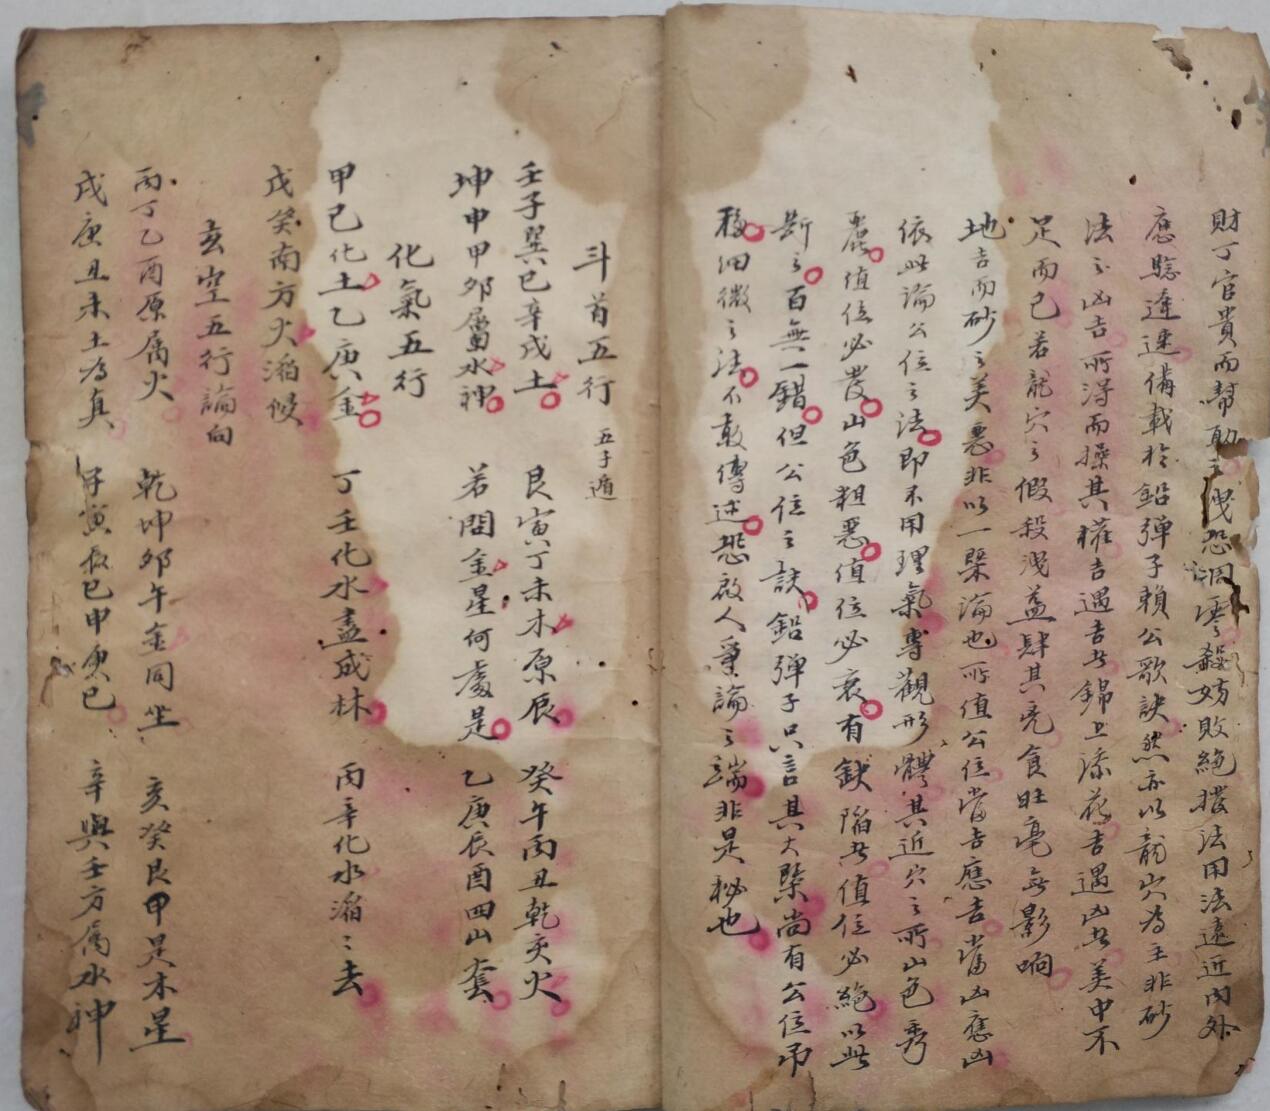 財丁官貴而幫助之洩恐洞零殺妨敗絕撥法用法遠近內外
應驗遲速備載於鉛彈子賴公歌訣然亦以龍穴為主非砂
法之凶吉所得而操其權吉遇吉者錦上添花吉遇凶者美中不
足而已若龍穴之假殺洩益肆其兇食旺毫無影响
地吉而砂之美惡非以一槩論也所值公位當吉應吉當凶應凶
依此論公位之法即不用理氣專觀形體其近穴之所山色秀
麗值位必發山色粗惡值位必衰有缺陷者值位必絕以此
斷之百無一錯但公位之訣鉛彈子只言其大槩尚有公位吊
移細微之法不敢傳述恐啟人爭論之端非是秘也
斗首五行 五子遁
壬子巽巳辛戌土 艮寅丁未木原辰 癸午丙丑乾亥火
坤申甲卯屬水神 若問金星何處是 乙庚辰酉四山套
化氣五行
甲己化土乙庚金 丁壬化木盡成林 丙辛化水滔之去
戊癸南方火滔候
玄空五行論向
丙丁乙酉原屬火 乾坤卯午金同坐 亥癸艮甲是木星
戌庚丑未土為真 子寅辰巳申庚巳 辛與壬方屬水神